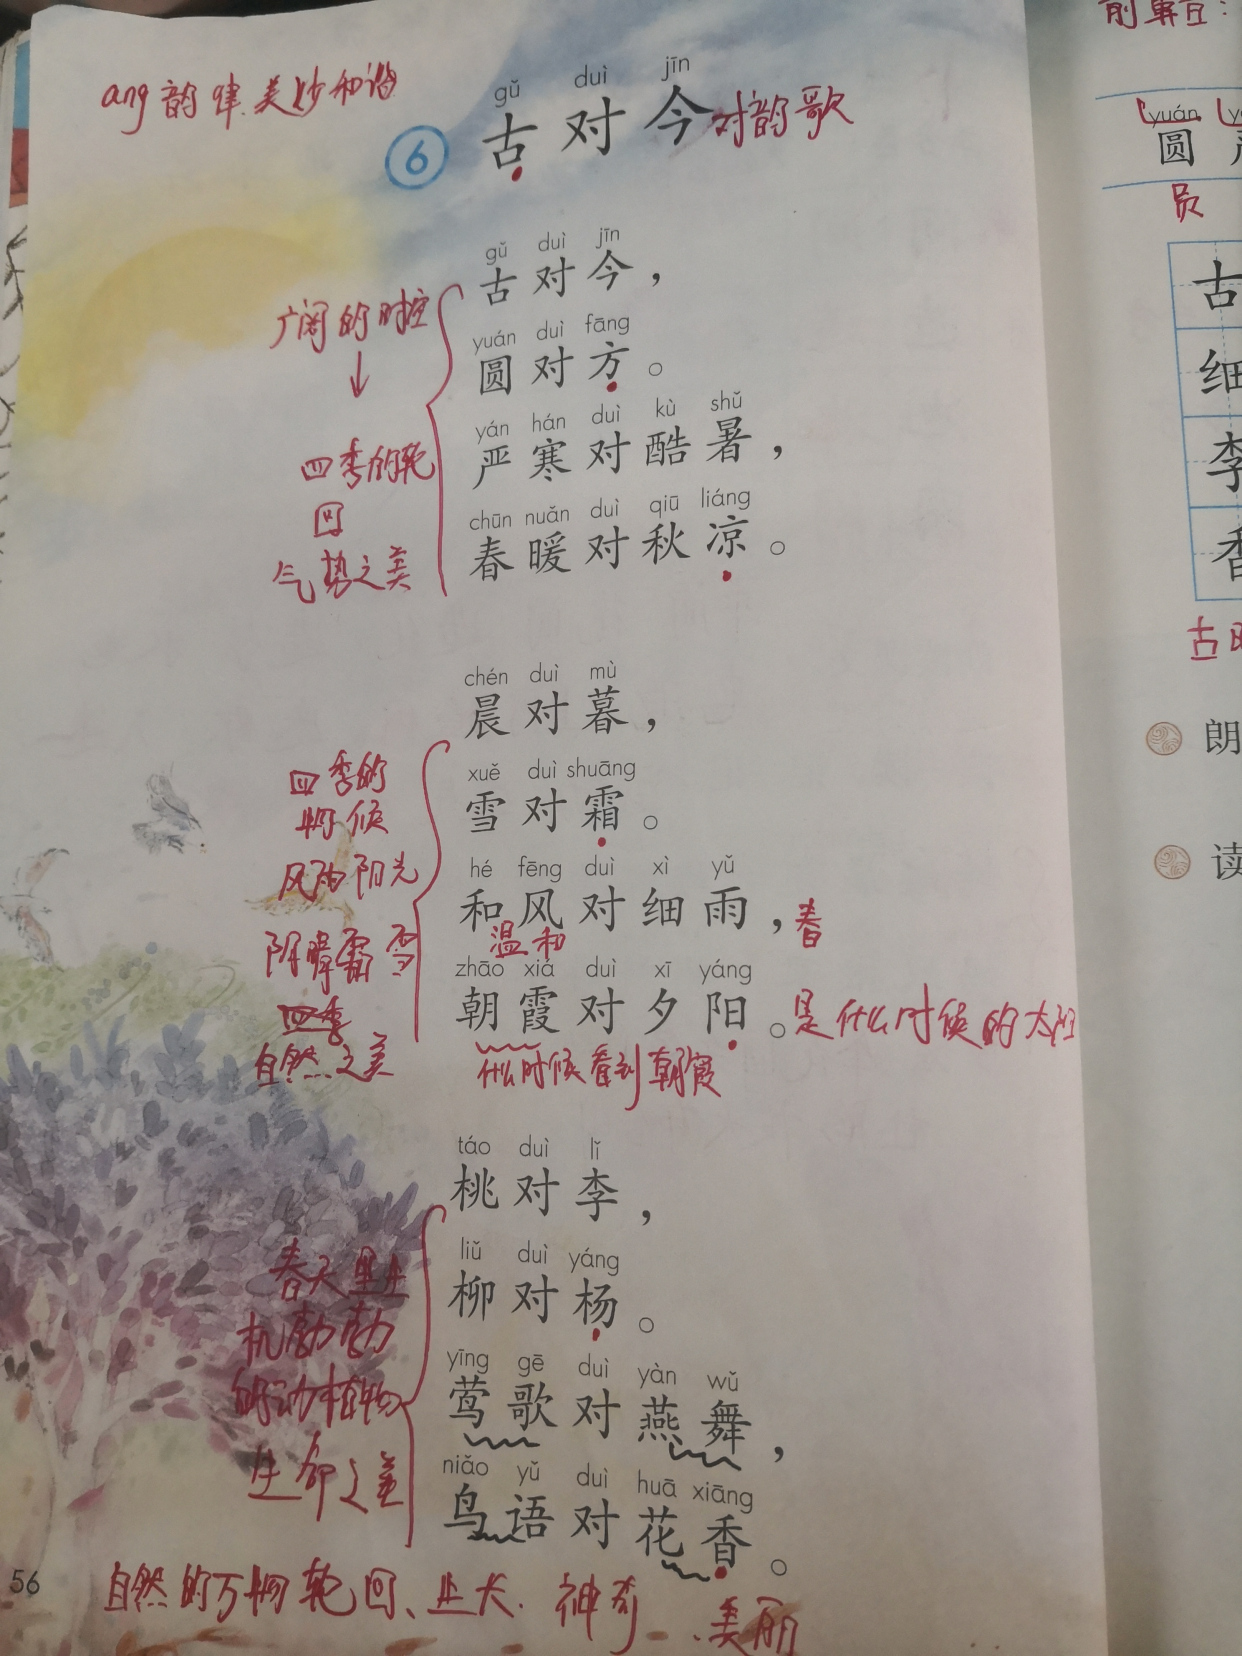 ang韵律美妙和谐
gǔ duì jīn
6 古对今 对韵歌
gǔ duì jīn
古对今，
广阔的时空
yuán duì fāng
圆对方。
↓
yán hán duì kù shǔ
严寒对酷暑，
四季的轮
回
chūn nuǎn duì qiū liáng
春暖对秋凉。
气势之美
chén duì mù
晨对暮，
四季的
物候
xuě duì shuāng
雪对霜。
风雨阳光
hé fēng duì xì yǔ
和风对细雨，春
温和
阴晴霜雪
zhāo xiá duì xī yáng
朝霞对夕阳。是什么时候的太阳
四季
自然之美
什么时候看到朝霞
táo duì lǐ
桃对李，
liǔ duì yáng
柳对杨。
春天里生
机勃勃
的动植物
yīng gē duì yàn wǔ
莺歌对燕舞，
生命之美
niǎo yǔ duì huā xiāng
鸟语对花香。
56
自然的万物轮回、生长、神奇、美丽
yuán
圆
员
古
细
李
香
古
朗
读